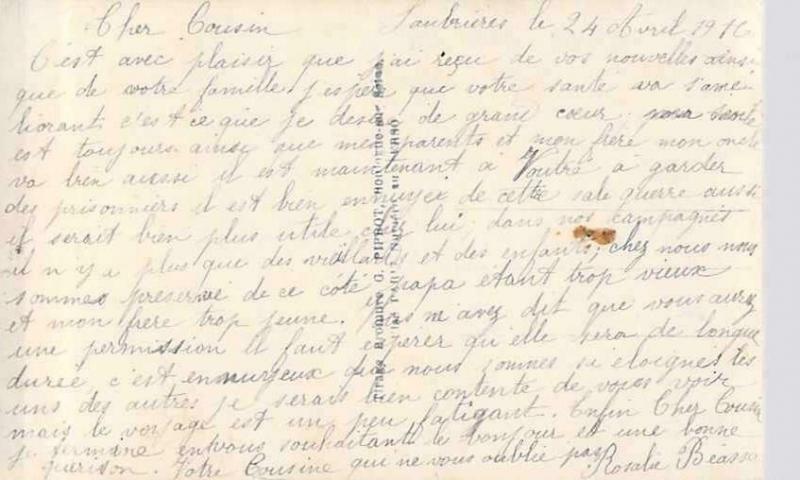 Cher Cousin
Saubrières le 24 Avril 1916
C'est avec plaisir que j'ai reçu de vos nouvelles ainsi
que de votre famille j'espère que votre santé va s'amé
liorant c'est ce que je désire de grand cœur
est toujours ainsi que mes parents et mon frère mon oncle
va bien aussi il est maintenant à Voutré à garder
des prisonniers il est bien ennuyez de cette sale guerre aussi
il serait bien plus utile chez lui dans nos campagnes
il n'y a plus que des vieillards et des enfants, chez nous nous
sommes préservé de ce côté papa étant trop vieux
et mon frère trop jeune. Vous m'avez dit que vous aurez
une permission il faut espérer qu'elle sera de longue
durée c'est ennuyeux que nous sommes si éloignés les
uns des autres je serais bien contente de vous voir
mais le voyage est un peu fatigant. Enfin Cher Cousin
je termine en vous souhaitant le bonjour et une bonne
guérison. Votre Cousine qui ne vous oublie pas Rosalie